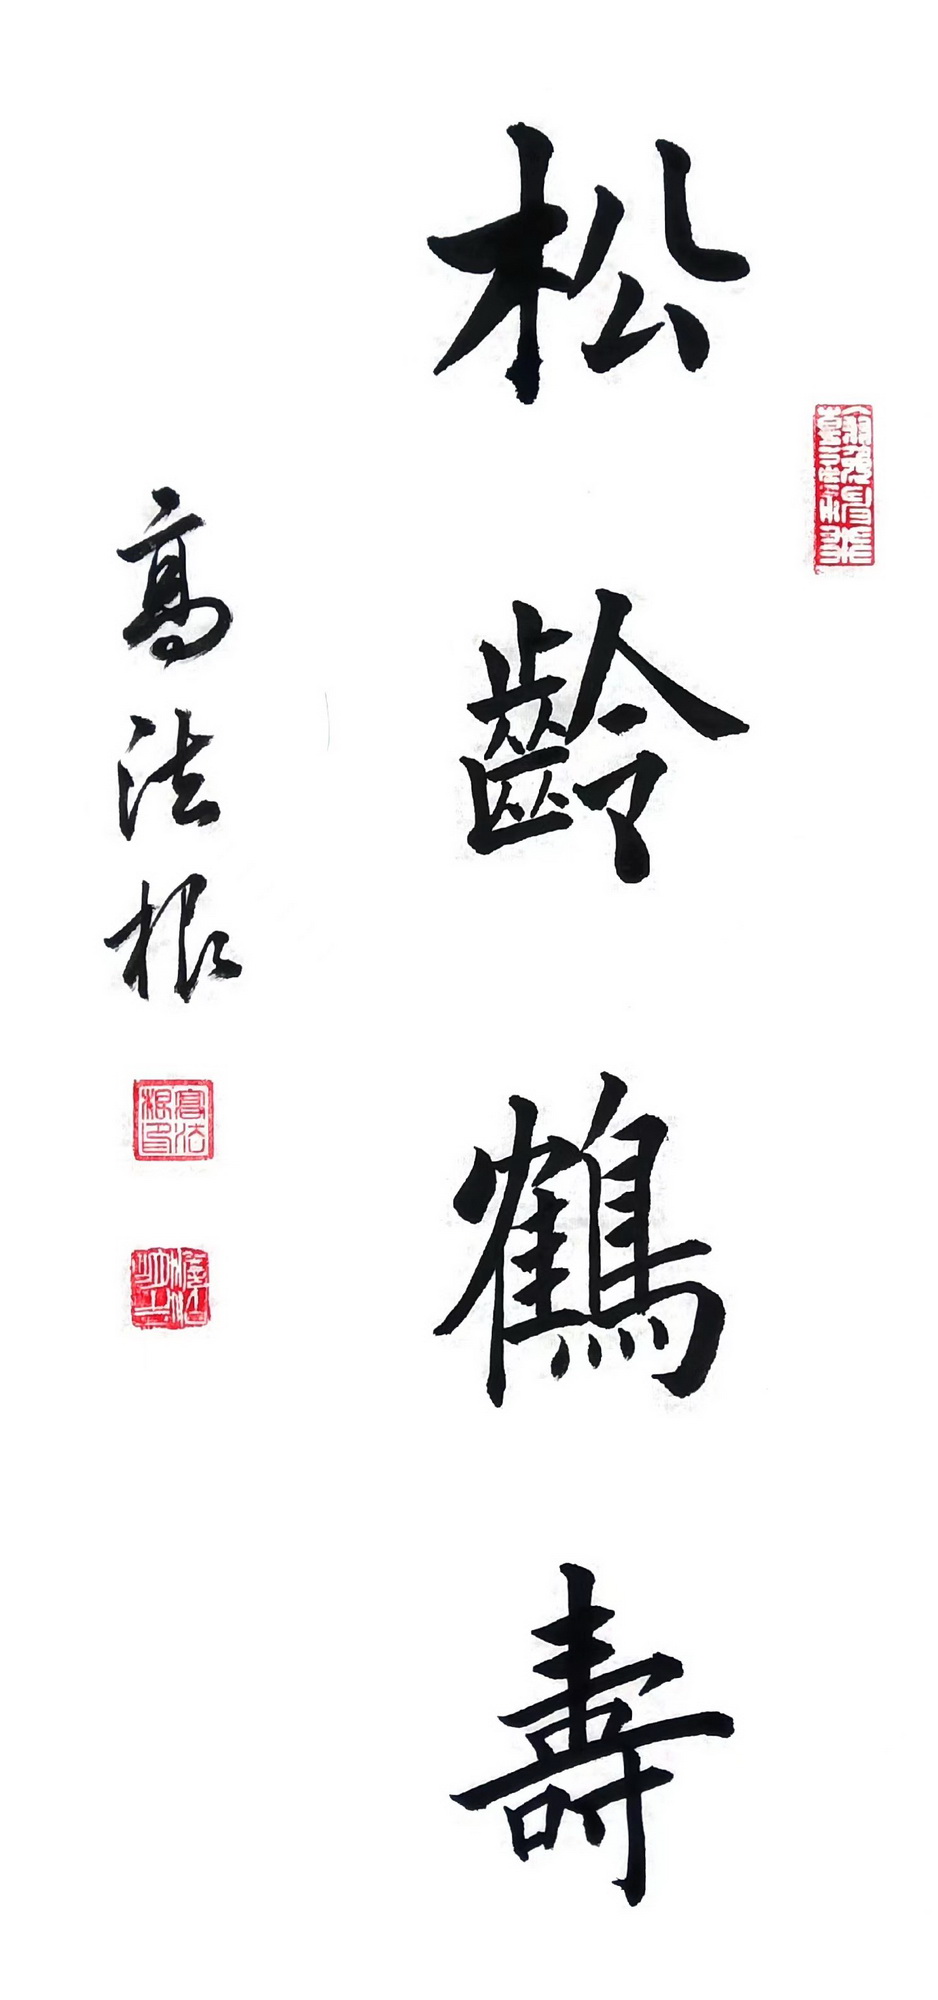 松齡鶴壽
高法根
高法根印